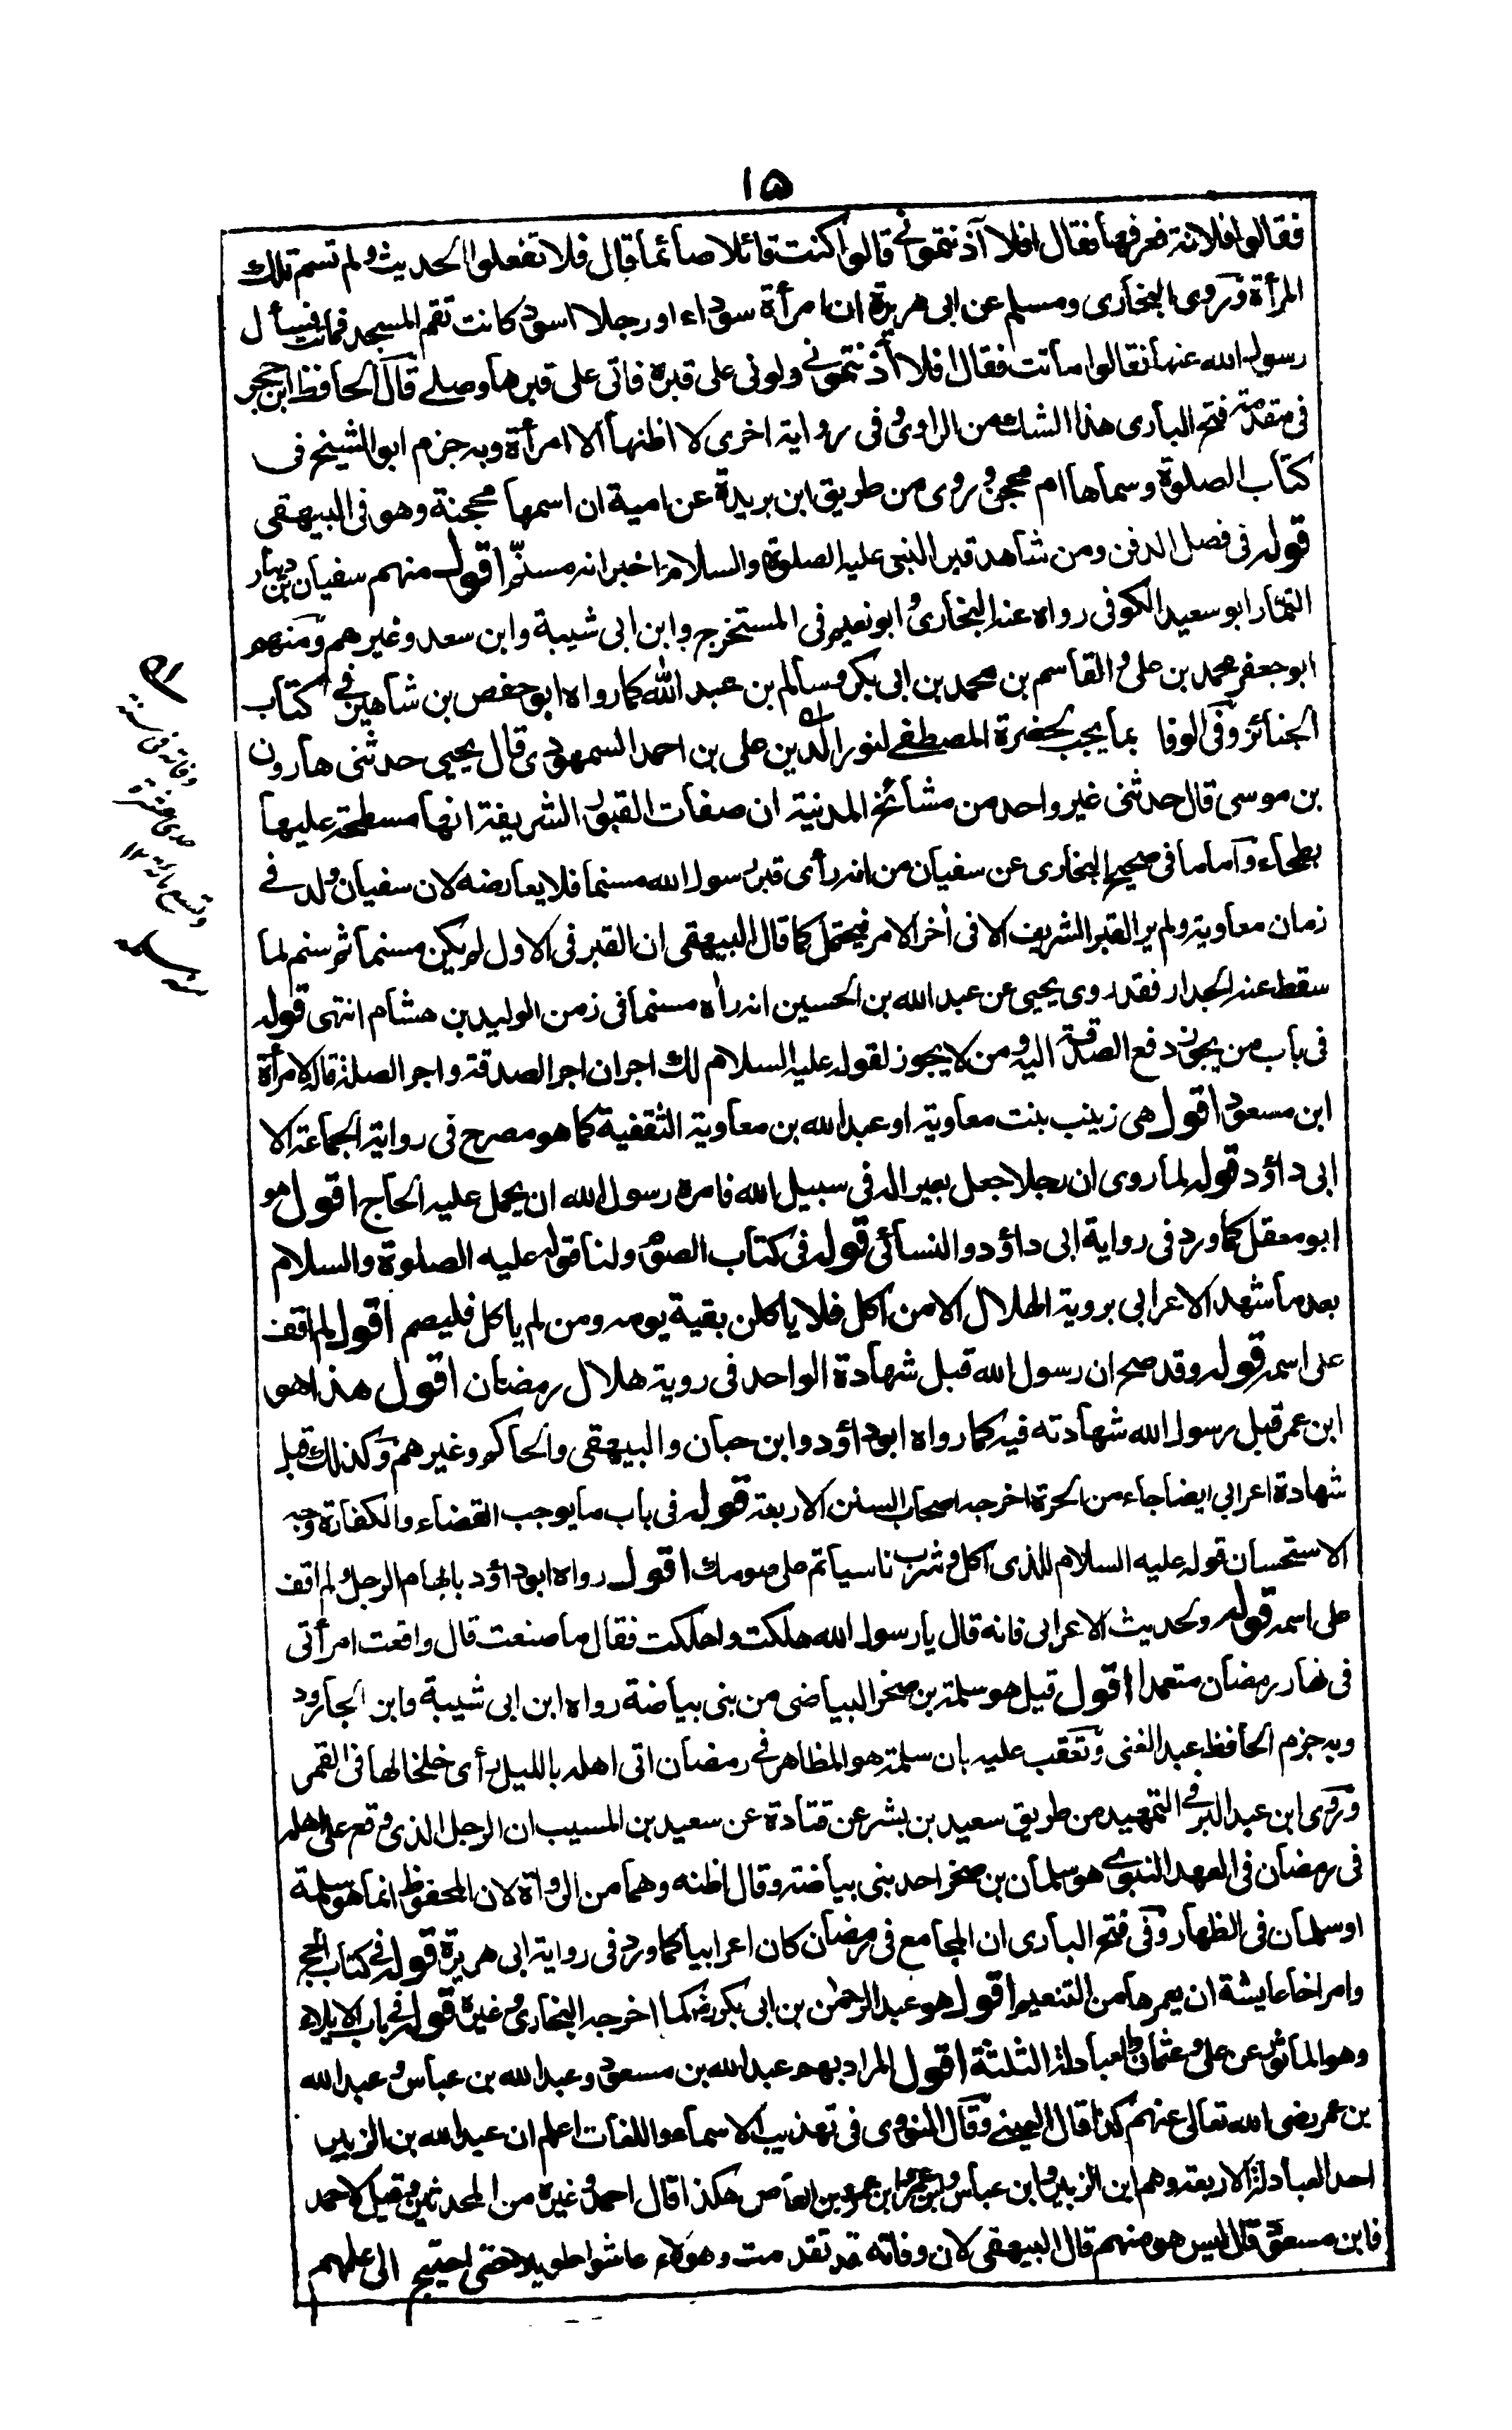 ١٥
فقالوا فلانة فعرفها فقال افلا آذنتموني قالوا كنت قائلا صائما قال فلا تفعلوا الحديث ولم تسم تلك
المرأة وروى البخارى ومسلم عن ابى هريرة ان امرأة سوداء او رجلا اسود كانت تقم المسجد فماتت فسأل
رسول الله عنها فقالوا ماتت فقال افلا آذنتموني دلونى على قبره فاتى على قبرها وصلے قال الحافظ ابن حجر
فى مقدمة فتح البارى هذا الشك من الراوى وفى رواية اخرى لا اظنها الا امرأة وبه جزم ابو الشيخ فى
كتاب الصلوة وسماها ام محجن وروى من طريق ابن بريدة عن امية ان اسمها محجنة وهو فى البيهقى
قوله فى فصل الدفن ومن شاهد قبر النبى عليه الصلوة والسلام اخبر انه مسنّم اقول منهم سفيان بن دينار
التمّار ابو سعيد الكوفى رواه عنه البخارى وابو نعيم فى المستخرج وابن ابى شيبة وابن سعد وغيرهم ومنهم
ابو جعفر محمد بن على والقاسم بن محمد بن ابى بكر وسالم بن عبد الله كما رواه ابو حفص بن شاهين فے كتاب
الجنائز وفى الوفا بما يجب لحضرة المصطفے لنور الدين على بن احمد السمهودى قال يحيى حدثنى هارون
بن موسى قال حدثنى غير واحد من مشائخ المدنية ان صفات القبور الشريفة انها مسطحة عليها
بطحاء واما ما فى صحيح البخارى عن سفيان من انه رأى قبر رسول الله مسنما فلا يعارضه لان سفيان ولد فے
زمان معاوية ولم ير القبر الشريف الا فى أخر الامر فيحتمل كما قال البيهقى ان القبر فى الاول لم يكن مسنما ثم سنم لما
سقط عنه الجدار فقد روى يحيى عن عبد الله بن الحسين انه رأه مسنما فى زمن الوليد بن هشام انتهى قوله
فى باب من يجوز دفع الصدقة اليه ومن لا يجوز لقوله عليه السلام لك اجران اجر الصدقة واجر الصلة قاله لامرأة
ابن مسعود اقول هى زينب بنت معاوية او عبد الله بن معاوية الثقفية كما هو مصرح فى رواية الجماعة الا
ابى داؤد قوله لما روى ان رجلا جعل بعيرا له فى سبيل الله فامره رسول الله ان يحمل عليه الحاج اقول هو
ابو معقل كما ورد فى رواية ابى داؤد والنسائى قوله فى كتاب الصوم ولنا قوله عليه الصلوة والسلام
بعد ما شهد الاعرابى بروية الهلال الا من اكل فلا ياكلن بقية يومه ومن لم ياكل فليصم اقول لم اقف
على اسمه قوله وقد صح ان رسول الله قبل شهادة الواحد فى روية هلال رمضان اقول هذا هو
ابن عمر قبل رسول الله شهادته فيه كما رواه ابو داؤد وابن حبان والبيهقى والحاكم وغيرهم وكذلك قبل
شهادة اعرابى ايضا جاء من الحرة اخرجه اصحاب السنن الاربعة قوله فى باب ما يوجب القضاء والكفارة وجه
الاستحسان قوله عليه السلام للذى اكل وشرب ناسيا تم على صومك اقول رواه ابو داؤد بابهام الرجل ولم اقف
على اسمه قوله ولحديث الاعرابى فانه قال يا رسول الله هلكت واهلكت فقال ما صنعت قال واقعت امرأتى
فى نهار رمضان متعمدا اقول قيل هو سلمة بن صخر البياضى من بنى بياضة رواه ابن ابى شيبة وابن الجارود
وبه جزم الحافظ عبد الغنى وتعقب عليه بان سلمة هو المظاهر فے رمضان اتى اهله بالليل رأى خلخالها فى القمر
وروى ابن عبد البر فے التمهيد من طريق سعيد بن بشر عن قتادة عن سعيد بن المسيب ان الرجل الذى وقع على اهله
فى رمضان فى العهد النبوى هو سلمان بن صخر احد بنى بياضة وقال اظنه وهما من الرواة لان المحفوظ انما هو سلمة
او سلمان فى الظهار وفى فتح البارى ان المجامع فى رمضان كان اعرابيا كما ورد فى رواية ابى هريرة قوله فے كتاب الحج
وامر اخا عايشة ان يعمرها من التنعيم اقول هو عبد الرحمٰن بن ابى بكر كما اخرجه البخارى وغيره قوله فے باب الايلاء
وهو الماثور عن على وعثمان والعبادلة الثلثة اقول المراد بهم عبد الله بن مسعود وعبد الله بن عباس وعبد الله
بن عمر رضى الله تعالى عنهم كذا قال العينے وقال النووى فى تهذيب الاسماء واللغات اعلم ان عبد الله بن الزبير
احد العبادلة الاربعة وهم ابن الزبير وابن عباس وابن عمر وابن عمرو بن العاص هكذا قال احمد وغيره من المحدثين وقيل لاحمد
فابن مسعود قال ليس هو منهم قال البيهقى لان وفاته قد تقدمت وهؤلاء عاشوا طويلا حتى احتيج الى علمهم